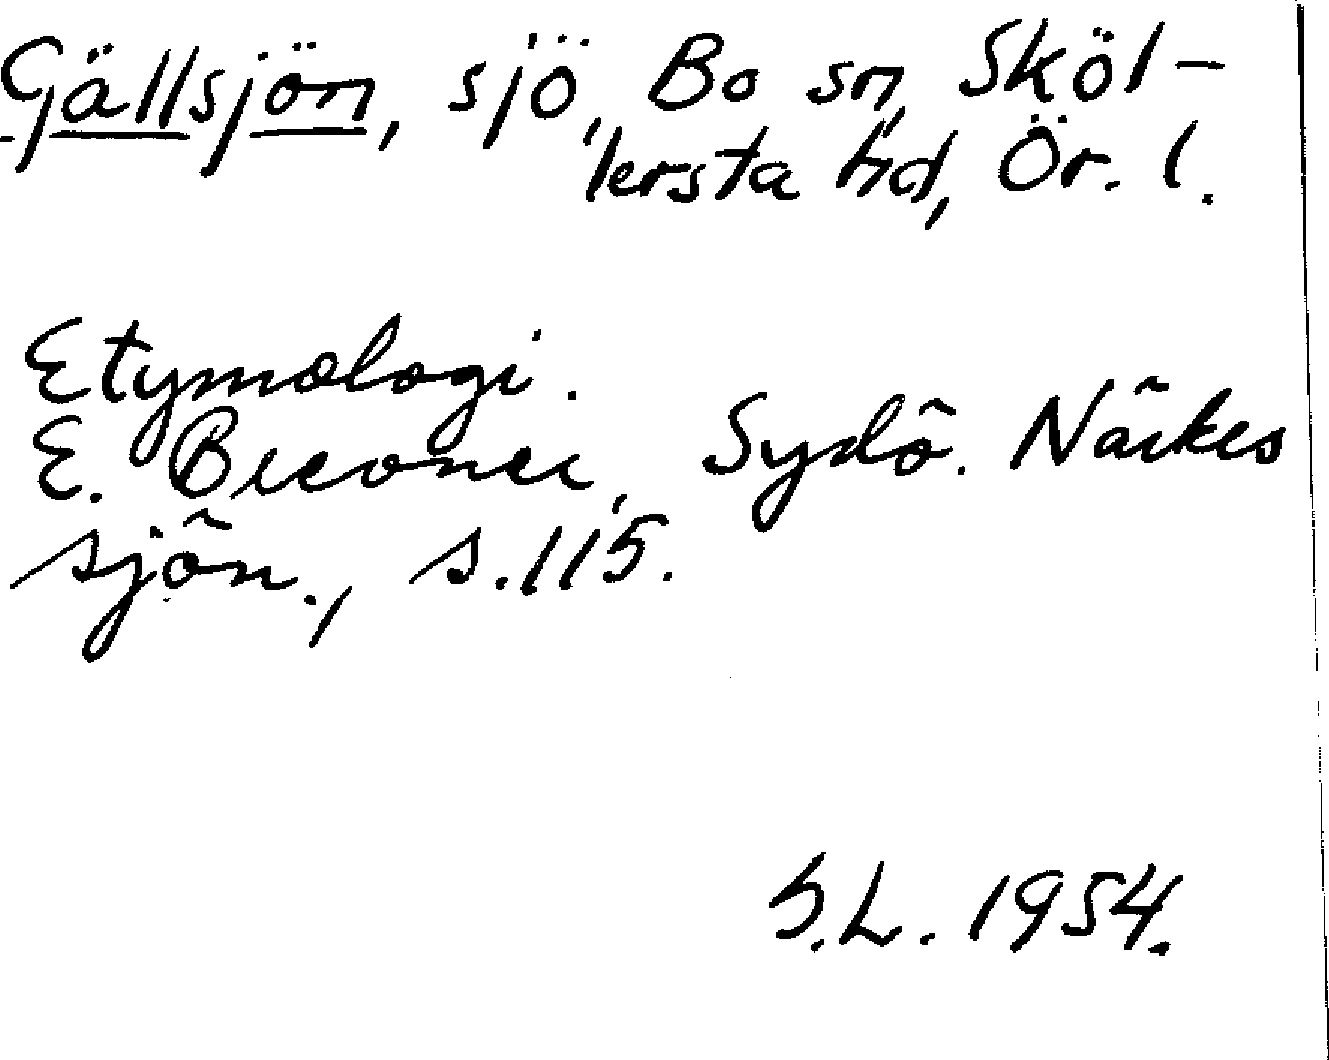 Gällsjön, sjö, Bo sn, Sköl-
lersta hd, Ör. l.
Etymologi.
E. Brevner, Sydö. Närkes
sjön., s. 115.
S.L. 1954.